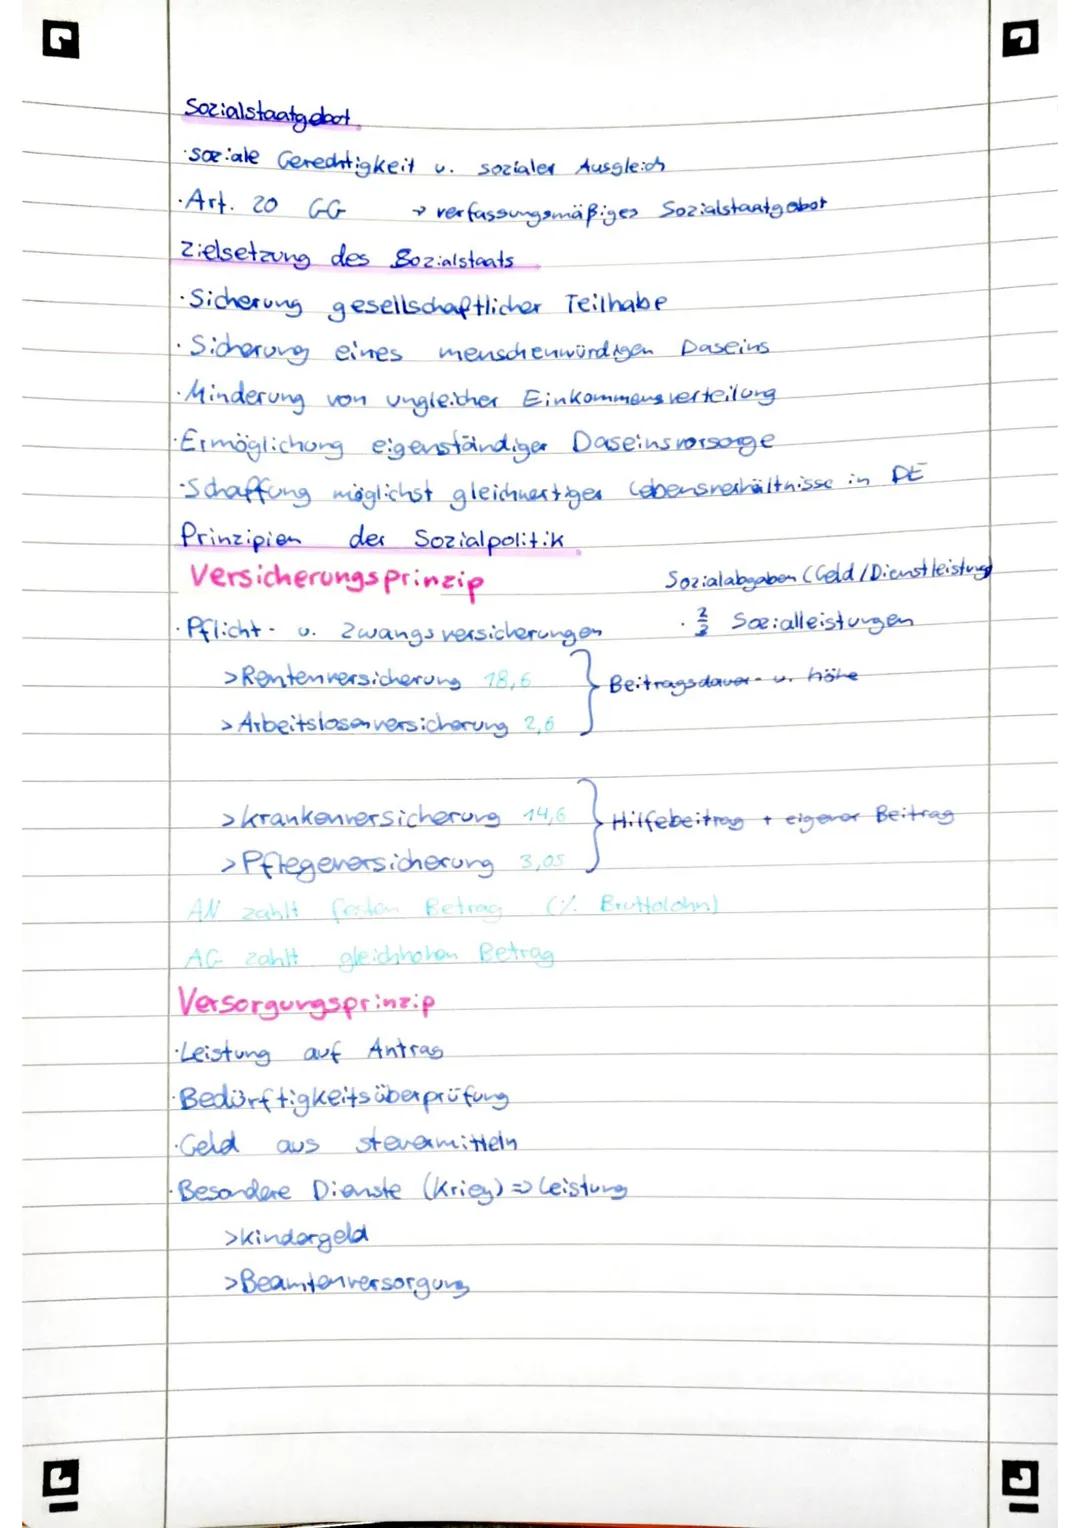 Sozialstaatgebot
·soziale Gerechtigkeit u. sozialer Ausgleich
·Art. 20 GG → verfassungsmäßiges Sozialstaatgebot
Zielsetzung des Sozialstaats
·Sicherung gesellschaftlicher Teilhabe
·Sicherung eines menschenwürdigen Daseins
·Minderung von ungleicher Einkommensverteilung
·Ermöglichung eigenständiger Daseinsvorsorge
·Schaffung möglichst gleichwertiger Lebensverhältnisse in DE
Prinzipien der Sozialpolitik
Versicherungsprinzip
Sozialabgaben (Geld/Dienstleistung)
·Pflicht- u. Zwangsversicherungen
· 2/3 Sozialleistungen
>Rentenversicherung 18,6
>Arbeitslosenversicherung 2,6
Beitragsdauer- u. höhe
>Krankenversicherung 14,6
>Pflegeversicherung 3,05
Hilfebeitrag + eigener Beitrag
AN zahlt festen Betrag (% Bruttolohn)
AG zahlt gleichhohen Betrag
Versorgungsprinzip
·Leistung auf Antrag
·Bedürftigkeitsüberprüfung
·Geld aus steuermitteln
·Besondere Dienste (Krieg) => Leistung
>Kindergeld
>Beamtenversorgung